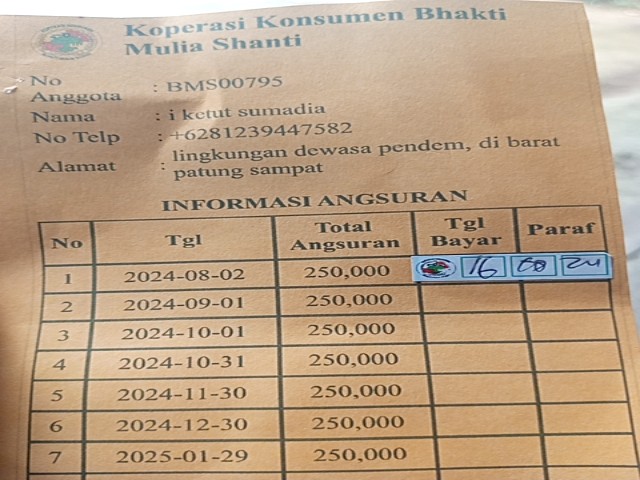 Koperasi Konsumen Bhakti
Mulia Shanti
No
Anggota : BMS00795
Nama : i ketut sumadia
No Telp : +6281239447582
Alamat : lingkungan dewasa pendem, di barat
patung sampat
INFORMASI ANGSURAN
No Tgl Total Angsuran Tgl Bayar Paraf
1 2024-08-02 250,000 16 08 24
2 2024-09-01 250,000
3 2024-10-01 250,000
4 2024-10-31 250,000
5 2024-11-30 250,000
6 2024-12-30 250,000
7 2025-01-29 250,000